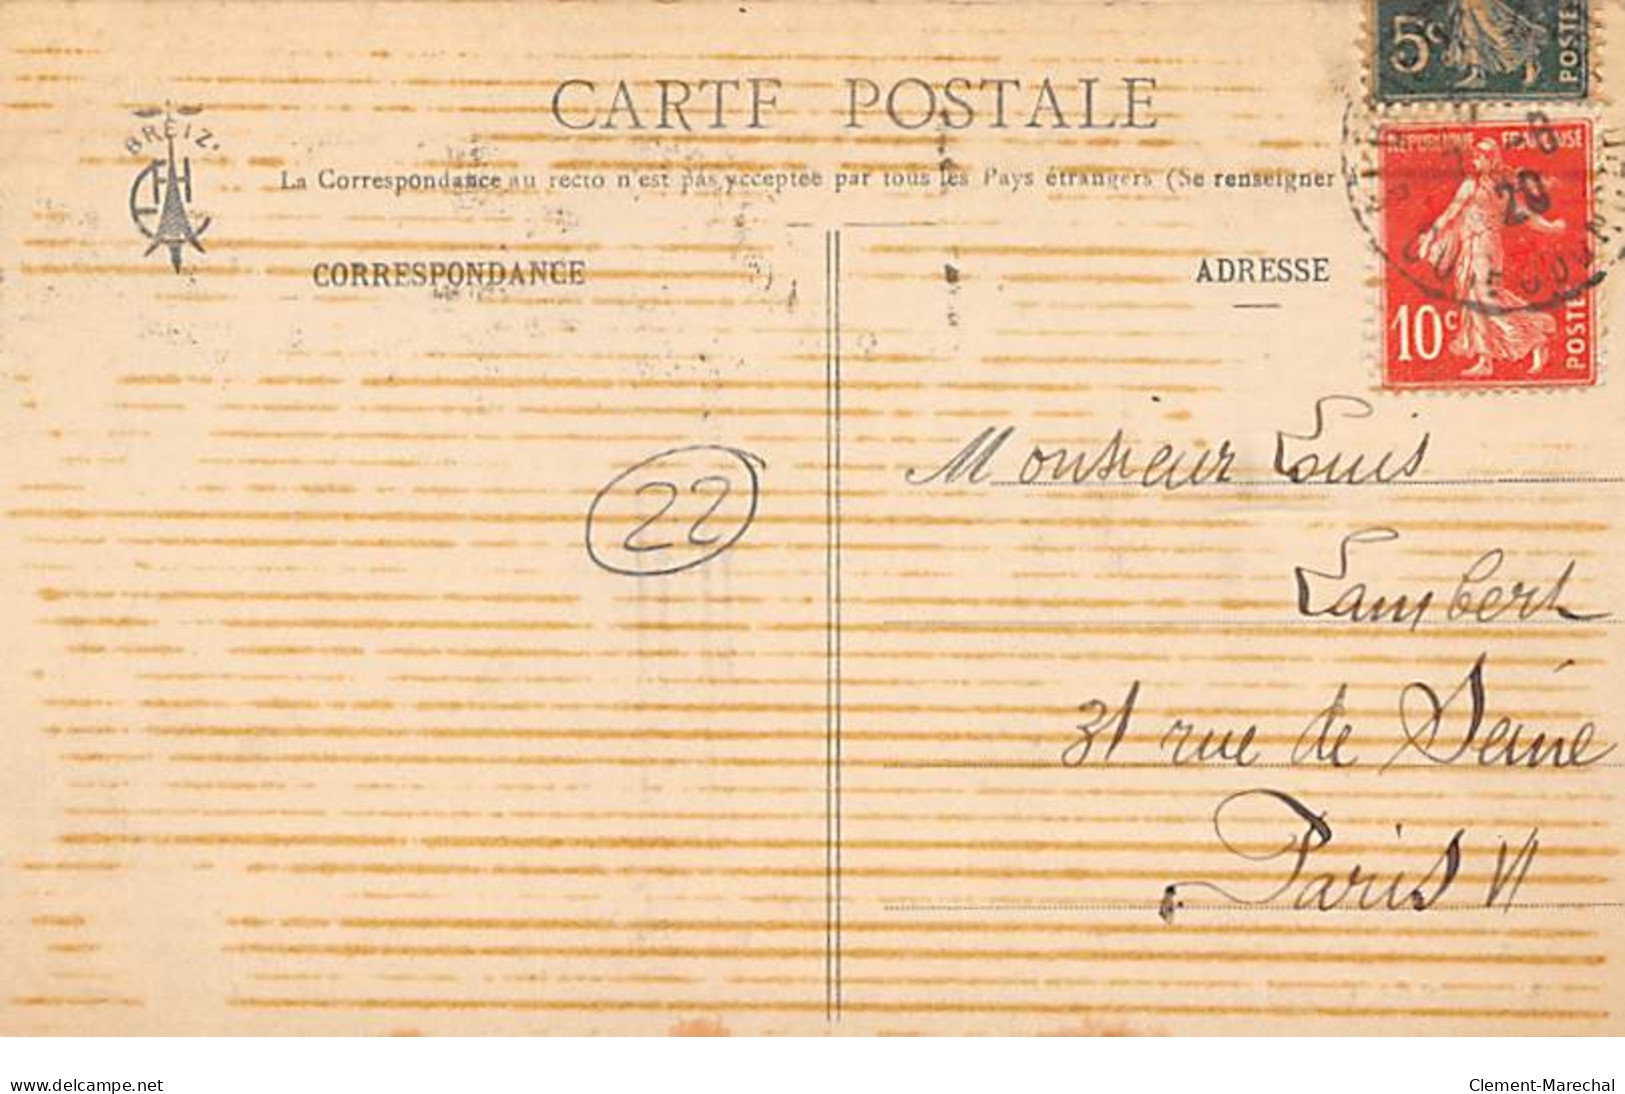 CARTE POSTALE
5c
POSTE
BREIZ
La Correspondance au recto n'est pas acceptée par tous les Pays étrangers (Se renseigner
RÉPUBLIQUE FRANÇAISE
20
CORRESPONDANCE
ADRESSE
10c
POSTE
Monsieur Louis
22
Lambert
31 rue de Seine
Paris VI
www.delcampe.net
Clement-Marechal